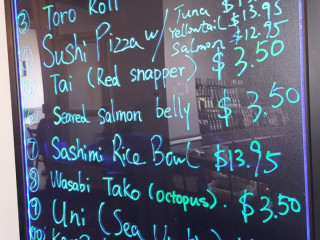 ③ Toro Roll
Tuna $1
Sushi Pizza w/ Yellowtail $13.95
Salmon $12.95
Tai (Red snapper) $3.50
Seared salmon belly $3.50
⑦ Sashimi Rice Bowl $13.95
⑧ Wasabi Tako (octopus). $3.50
⑨ Uni (Sea